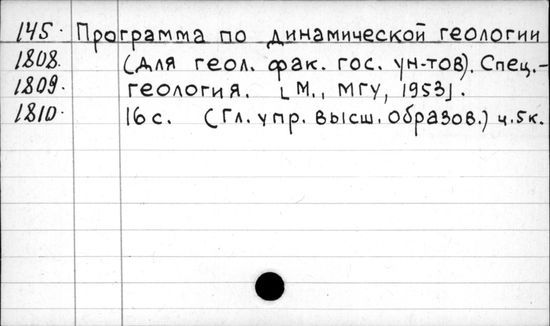 145. Программа по динамической геологии
1808. (для геол. фак. гос. ун-тов). Спец.-
1809. геология. [М., МГУ, 1953].
1810. 16 с. (Гл. упр. высш. образов.) ч. 5 к.